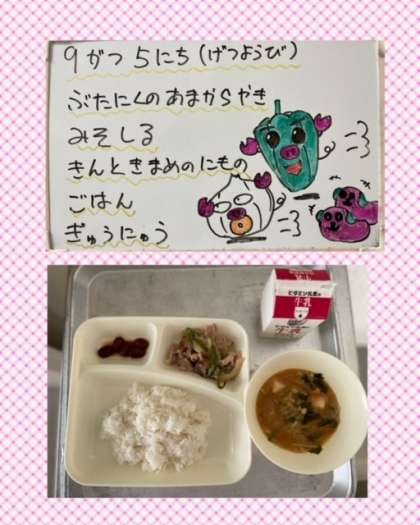 9がつ5にち(げつようび)
ぶたにくのあまからやき
みそしる
きんときまめのにもの
ごはん
ぎゅうにゅう
ビタミン乳業の
牛乳